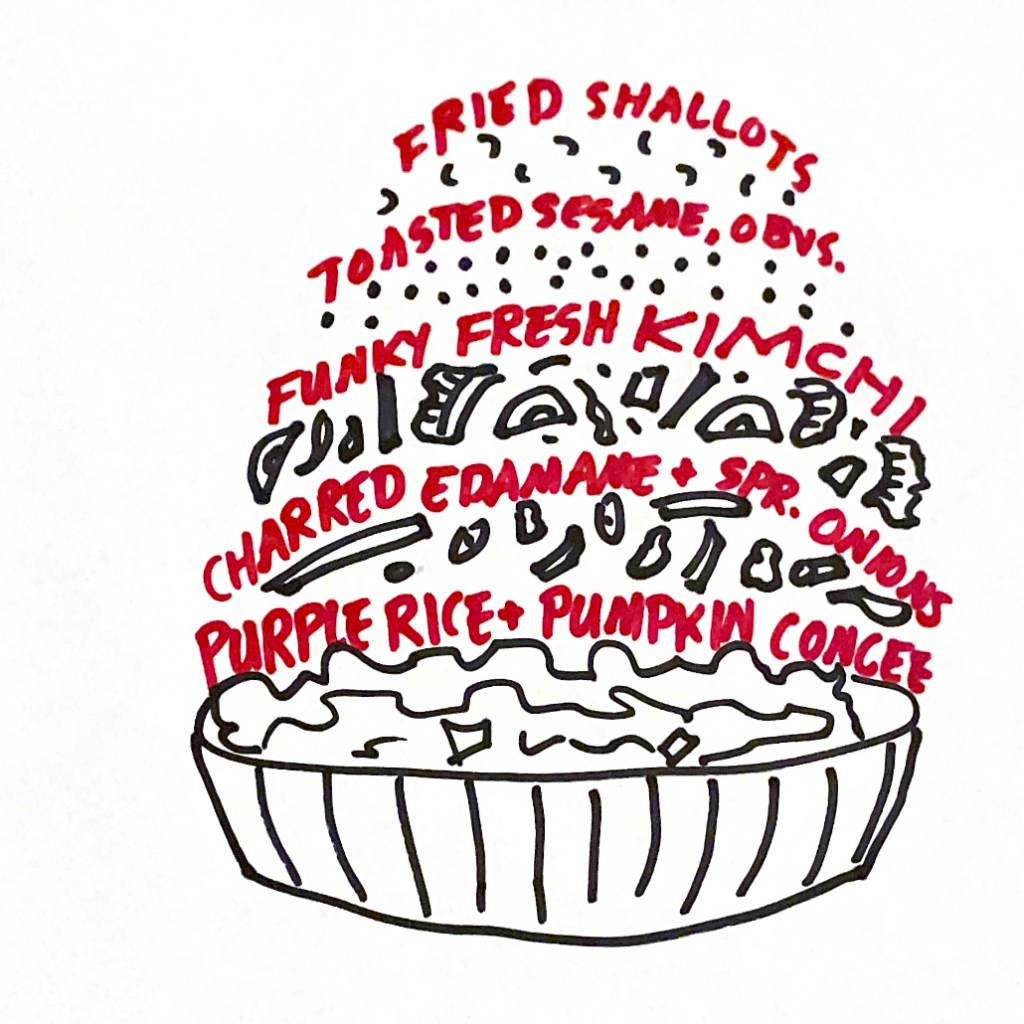 FRIED SHALLOTS
TOASTED SESAME, OBVS.
FUNKY FRESH KIMCHI
CHARRED EDAMAME + SPR. ONIONS
PURPLE RICE + PUMPKIN CONGEE